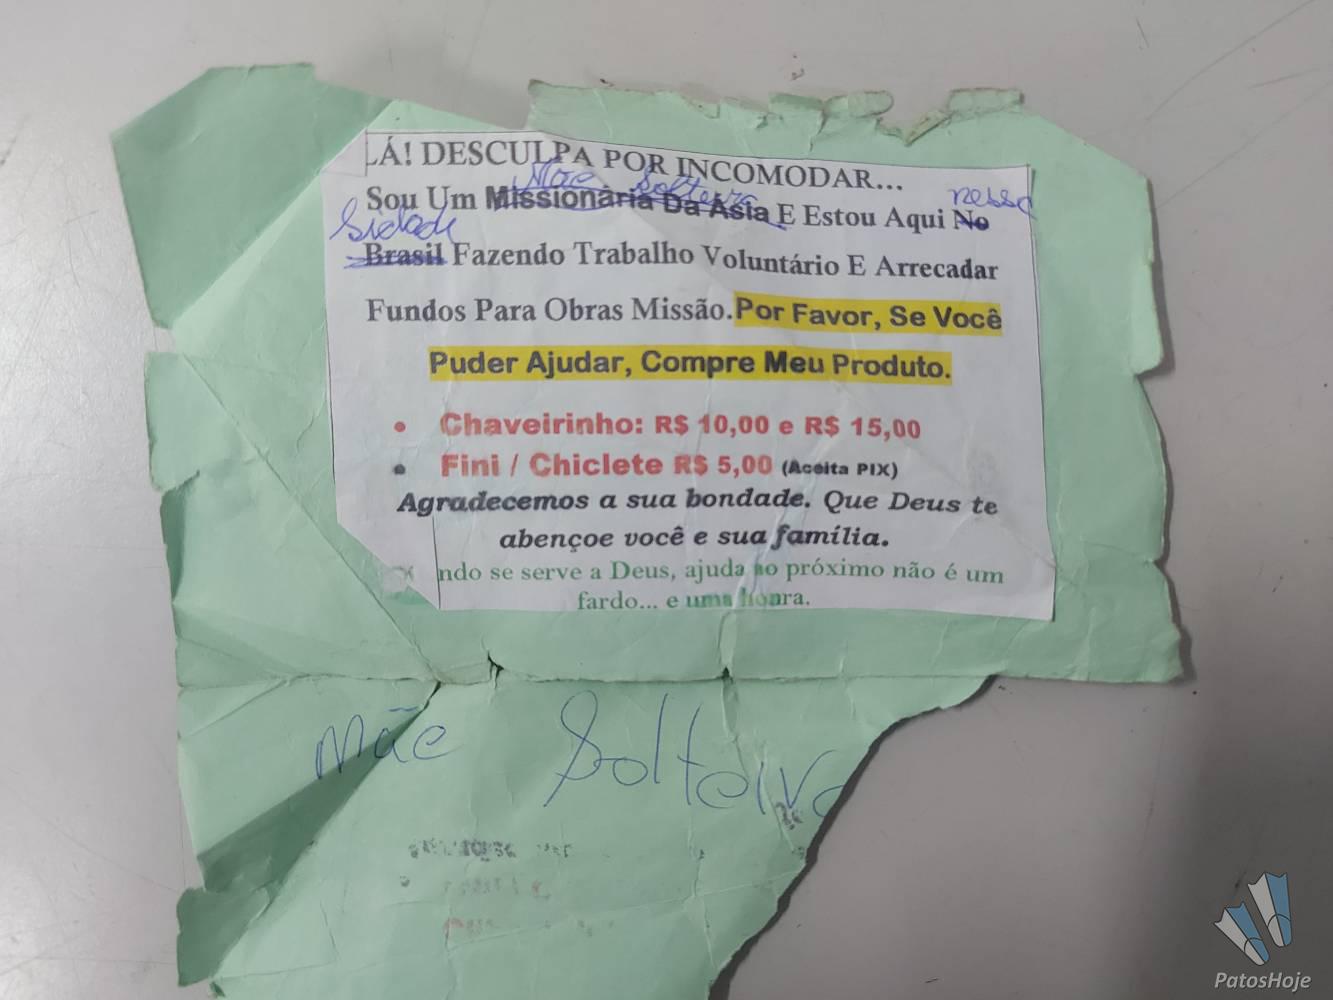 LÁ! DESCULPA POR INCOMODAR...
Mãe Solteira nessa
Sou Um Missionária Da Ásia E Estou Aqui No
Sidade
Brasil Fazendo Trabalho Voluntário E Arrecadar
Fundos Para Obras Missão. Por Favor, Se Você
Puder Ajudar, Compre Meu Produto.
• Chaveirinho: R$ 10,00 e R$ 15,00
• Fini / Chiclete R$ 5,00 (Aceita PIX)
Agradecemos a sua bondade. Que Deus te
abençoe você e sua família.
ndo se serve a Deus, ajuda ao próximo não é um
fardo... e uma honra.
Mãe Solteira
PatosHoje